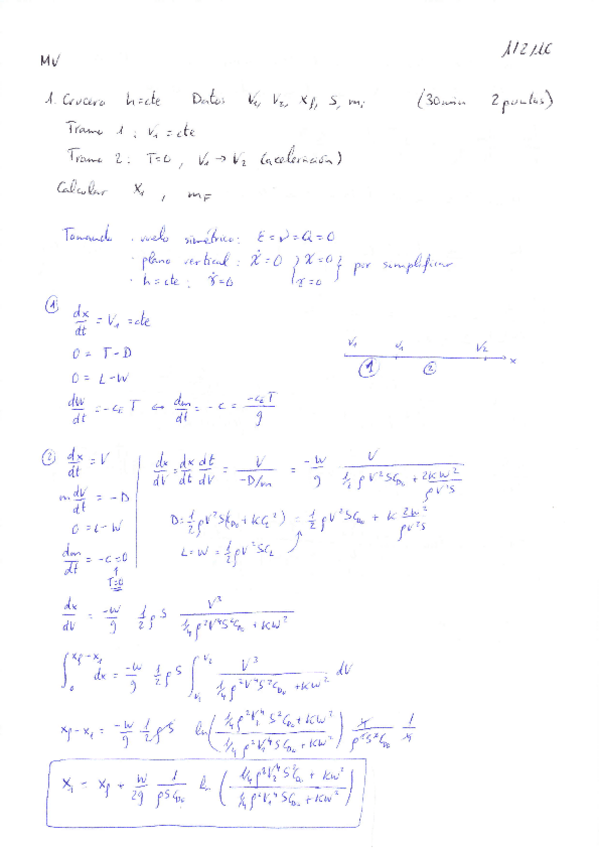 1/2/16
MV
1. Crucero h=cte Datos V₁, V₂, xf, S, mi (30min 2 puntos)
Tramo 1: V₁ = cte
Tramo 2: T=0, V₁ → V₂ (aceleración)
Calcular x₁, mF
Tomando · vuelo simétrico: ε = ν = Q = 0
· plano vertical: χ̇ = 0 } χ = 0 } por simplificar
· h=cte: γ̇ = 0 { γ = 0 }
①
dx/dt = V₁ = cte
0 = T - D
0 = L - W
dW/dt = -cE T ↔ dm/dt = -c = -cE T/g
V₁ V₁ V₂ x
① ②
② dx/dt = V
m dV/dt = -D
0 = L - W
dm/dt = -c = 0
T=0
dx/dV = dx/dt dt/dV = V/(-D/m) = -W/g V/(½ρV²SC_D₀ + 2KW²/(ρV²S))
D = ½ρV²S(C_D₀ + KC_L²) = ½ρV²SC_D₀ + K 2W²/(ρV²S)
L = W = ½ρV²SC_L
dx/dV = -W/g ½ρS V³/(¼ρ²V⁴S²C_D₀ + KW²)
∫₀^(xf-x₁) dx = -W/g ½ρS ∫_(V₁)^(V₂) V³/(¼ρ²V⁴S²C_D₀ + KW²) dV
xf - x₁ = -W/g ½ρS ln((¼ρ²V₂⁴S²C_D₀ + KW²)/(¼ρ²V₁⁴SC_D₀ + KW²)) 4/(ρ²S²C_D₀) 1/4
x₁ = xf + W/2g 1/(ρSC_D₀) ln((¼ρ²V₂⁴S²C_D₀ + KW²)/(¼ρ²V₁⁴SC_D₀ + KW²))